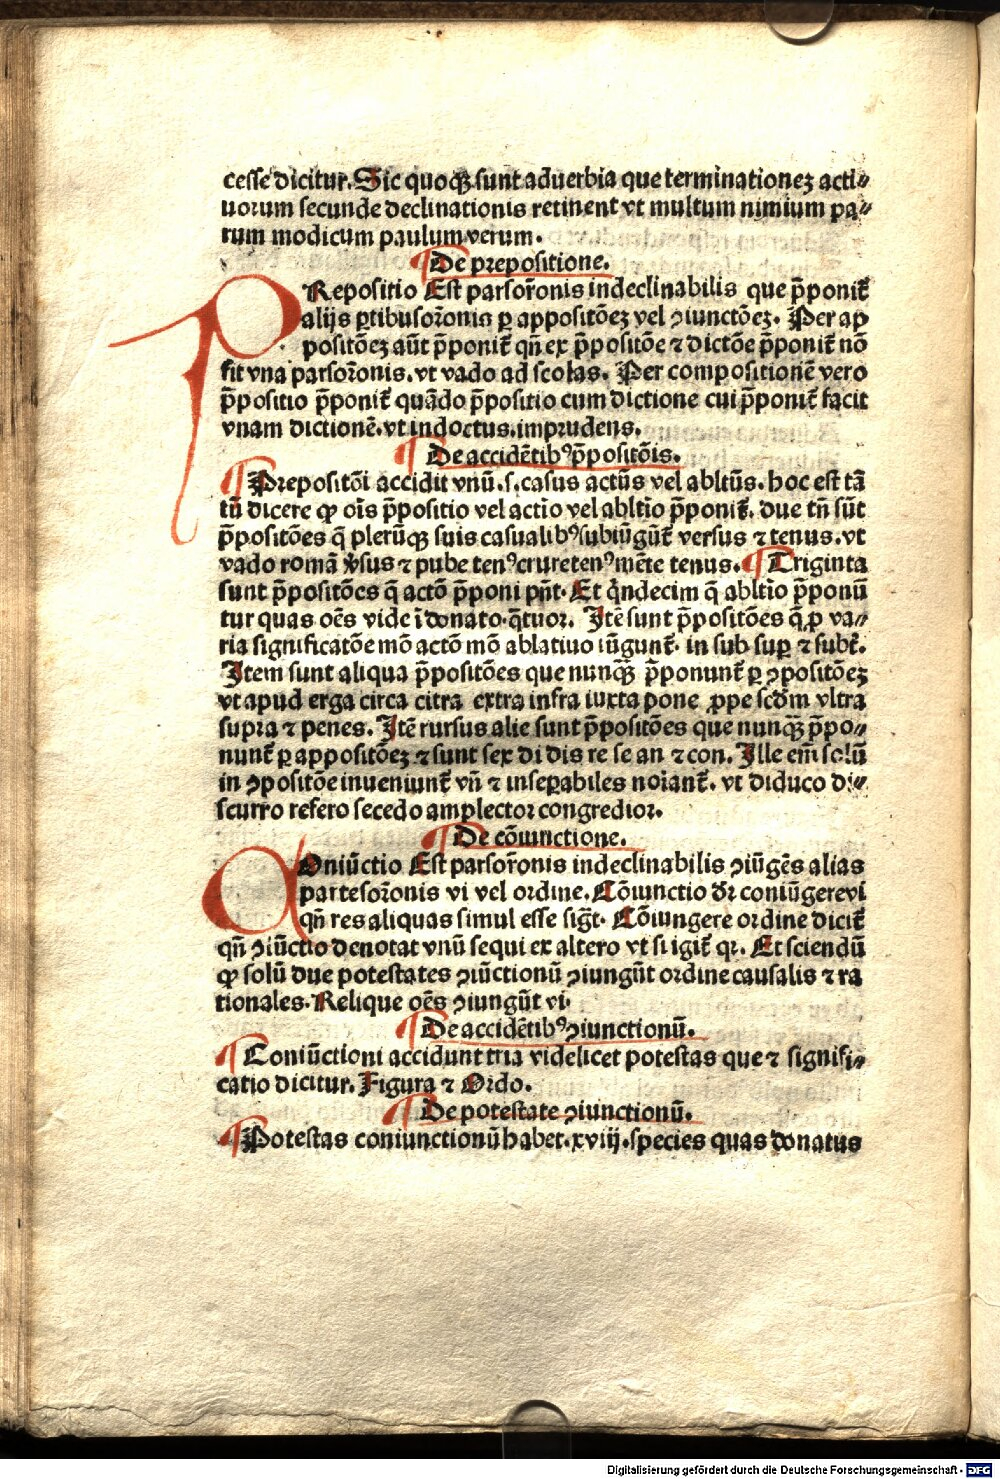 cesse dicitur. Sic quoqꝫ sunt aduerbia que terminationeꝫ acti⸗
uorum secunde declinationis retinent vt multum nimium pa⸗
rum modicum paulum verum.
¶ De prepositione.
PRepositio Est parsor̄onis indeclinabilis que p̄ponit̄
alijs ꝑtibusor̄onis ꝑ appositōeꝫ vel ꝯiunctōeꝫ. Per ap
positōeꝫ aūt p̄ponit̄ qn̄ ex p̄positōe ⁊ dictōe p̄ponit̄ nō
fit vna parsor̄onis. vt vado ad scolas. Per compositionē vero
p̄positio p̄ponit̄ quādo p̄positio cum dictione cui p̄ponit̄ facit
vnam dictionē. vt indoctus. imprudens.
¶ De accidētibꝰ p̄positōis.
¶ Prepositōi accidit vnū .s. casus actūs vel abltūs. hoc est tā
tū dicere ꝙ oīs p̄positio vel actio vel abltīo p̄ponit̄. due tn̄ sūt
p̄positōes q̄ plerūqꝫ suis casualibꝰ subiūgūt̄ versus ⁊ tenus. vt
vado romā v̓sus ⁊ pube tenꝰ crure tenꝰ mēte tenus. ¶ Triginta
sunt p̄positōes q̄ actō p̄poni pn̄t. Et q̇ndecim q̄ abltīo p̄ponū
tur quas oēs vide ī donato. q̄tuor. Itē sunt p̄positōes q̄ ꝓ va⸗
ria significatōe mō actō mō ablatiuo iūgunt̄. in sub suꝑ ⁊ subt̄.
Item sunt aliqua p̄positōes que nunqꝫ̄ p̄ponunt̄ ꝑ ꝯpositōeꝫ
vt apud erga circa citra extra infra iuxta pone ꝓpe scd̄m vltra
supra ⁊ penes. Itē rursus alie sunt p̄positōes que nunqꝫ̄ p̄po⸗
nunt̄ ꝑ appositōeꝫ ⁊ sunt sex di dis re se an ⁊ con. Ille em̄ solū
in ꝯpositōe inueniunt̄ vn̄ ⁊ inseꝑabiles noīant̄. vt diduco di⸗
scurro refero secedo amplector congredior.
¶ De cōiunctione.
COniūctio Est parsor̄onis indeclinabilis ꝯiūgēs alias
partesor̄onis vi vel ordine. Cōiunctio dr̄ coniūgerevi
qn̄ res aliquas simul esse sigt̄. Cōiungere ordine dicit̄
qn̄ ꝯiūctio denotat vnū sequi ex altero vt si igit̄ qr. Et sciendū
ꝙ solū due potestates ꝯiūctionū ꝯiungūt ordine causalis ⁊ ra
tionales. Relique oēs ꝯiungūt vi.
¶ De accidētibꝰ ꝯiunctionū.
¶ Coniūctioni accidunt tria videlicet potestas que ⁊ signifi⸗
catio dicitur. Figura ⁊ Ordo.
¶ De potestate ꝯiunctionū.
¶ Potestas coniunctionū habet .xviij. species quas donatus
Digitalisierung gefördert durch die Deutsche Forschungsgemeinschaft - DFG